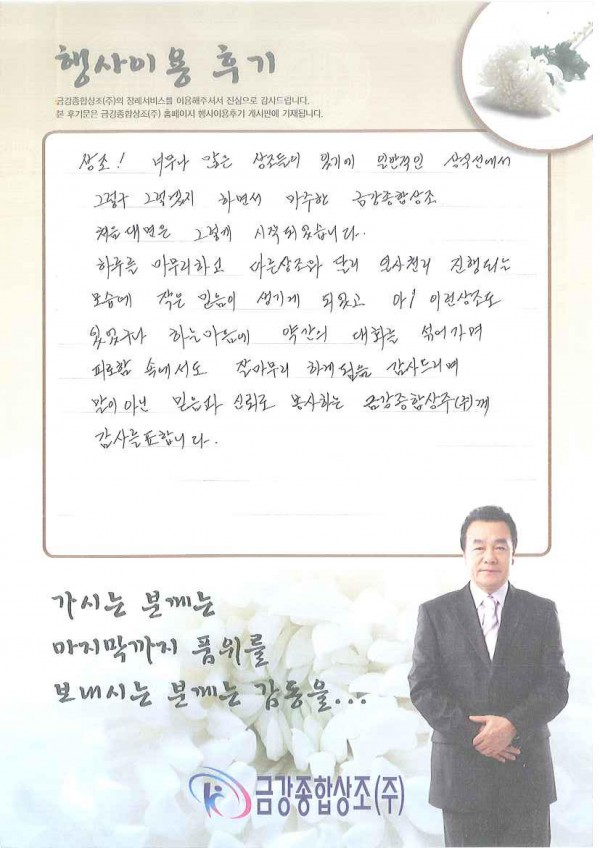 행사이용 후기
금강종합상조(주)의 장례서비스를 이용해주셔서 진심으로 감사드립니다.
본 후기문은 금강종합상조(주) 홈페이지 행사이용후기 게시판에 기재됩니다.
상조! 너무나 많은 상조들이 있기에 일반적인 상식선에서
그렇구 그렇겠지 하면서 마주한 금강종합상조
처음 대면은 그렇게 시작되었습니다.
하루를 마무리하고 다른상조와 달리 일사천리 진행되는
모습에 작은 믿음이 생기게 되었고 아! 이런상조도
있었구나 하는 마음에 약간의 대화를 섞어가며
피로함 속에서도 잘마무리 하게 됨을 감사드리며
말이 아닌 믿음과 신뢰로 봉사하는 금강종합상조(주)께
감사를 표합니다.
가시는 분께는
마지막까지 품위를
보내시는 분께는 감동을...
금강종합상조(주)